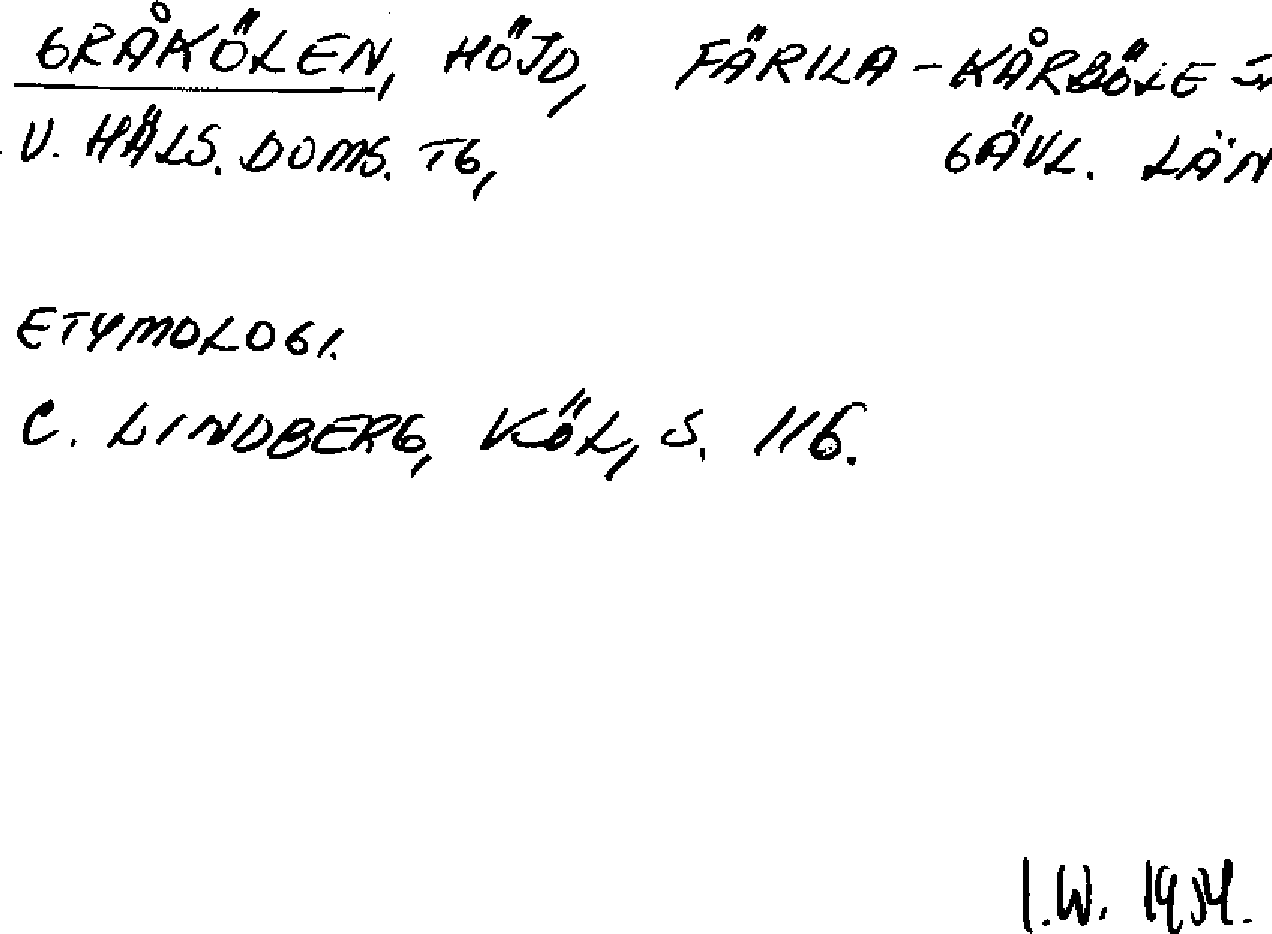 GRÅKÖLEN, HÖJD, FÄRILA-KÅRBÖLE
V. HÄLS. DOMS. TG, GÄVL. LÄN
ETYMOLOGI.
C. LINDBERG, KÖL, S. 116.
I.W.